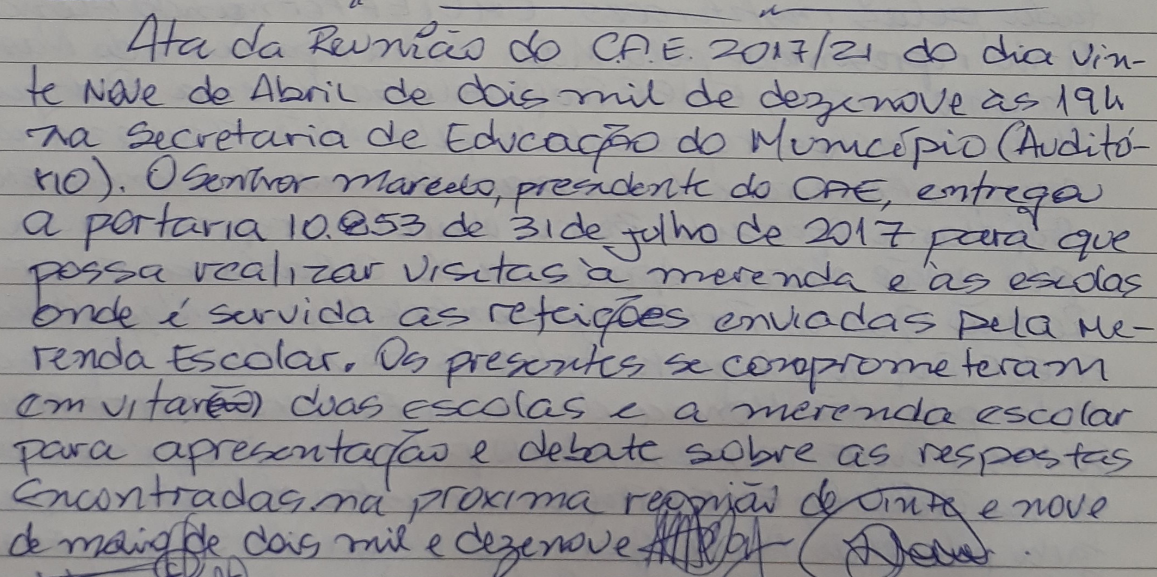 Ata da Reunião do C.A.E. 2017/21 do dia vin-
te Nove de Abril de dois mil de dezenove às 19h
na Secretaria de Educação do Município (Auditó-
rio). O Senhor Marcelo, presidente do CAE, entrega
a portaria 10.853 de 31 de julho de 2017 para que
possa realizar visitas à merenda e às escolas
onde é servida as refeições enviadas pela Me-
renda Escolar. Os presentes se comprometeram
em vitar duas escolas e a merenda escolar
para apresentação e debate sobre as respostas
Encontradas na proxima reonião de vinte e nove
de maio de dois mil e dezenove